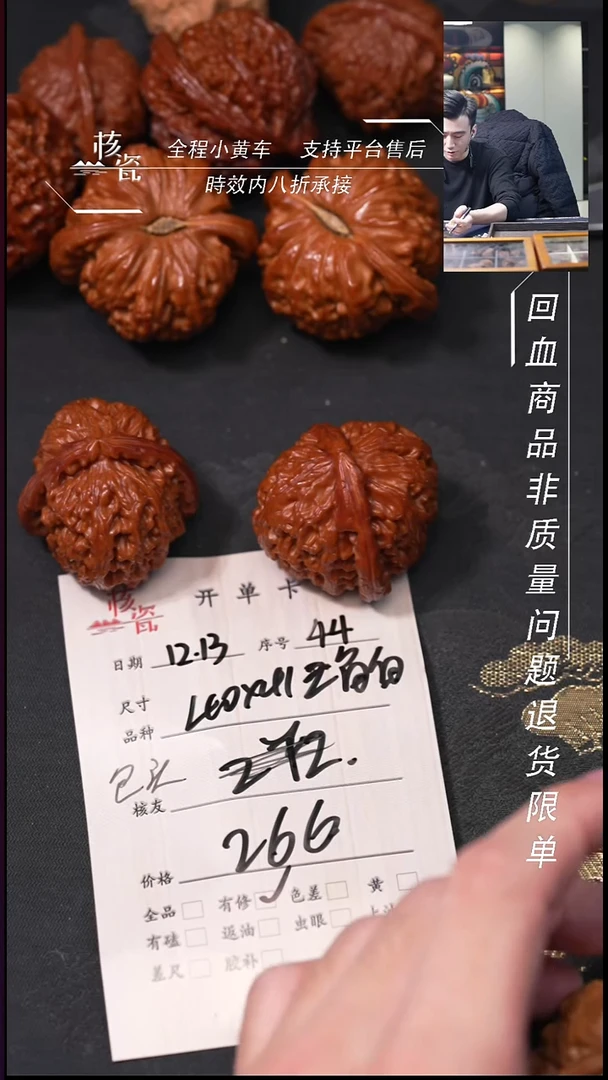 核瓷
全程小黄车 支持平台售后
時效内八折承接
回血商品非质量问题退货限单
核瓷
开单卡
日期 12.13 序号 44
尺寸
品种
包头
核友
266
价格
全品 有修 色差 黄
有磕 返油 虫眼
差尺 胶补